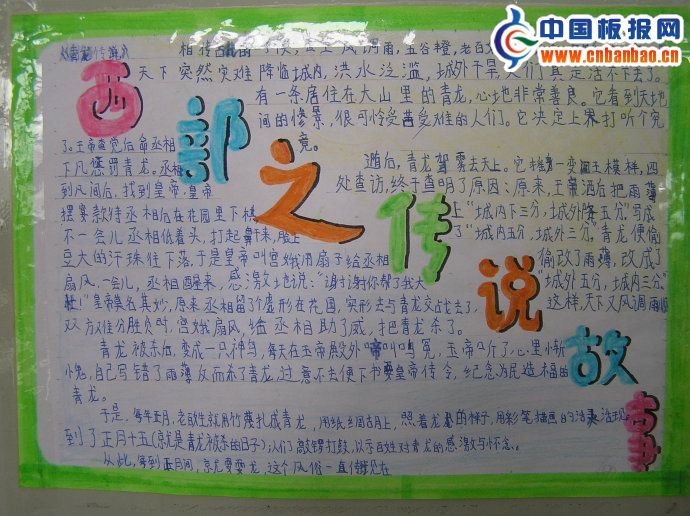 中国板报网
www.cnbanbao.cn
西部之传说故事
《青龙传说》
相传古代的时候，世上风调雨，五谷橙，老百
天下突然灾难降临城内，洪水泛滥，城外干旱，人们真是活不下去了。
有一条居住在大山里的青龙，心地非常善良。它看到天地
间的惨景，很可怜受苦受难的人们。它决定上界打听个究
竟。
迪后，青龙驾雾去天上。它摇身一变阎王模样，四
处查访，终于查明了原因：原来，王帝酒后把雨薄
上“城内下三分，城外降五分”写成
了“城内五分，城外三分”。青龙便偷
偷改了雨薄，改成了
“城外五分，城内三分”
这样，天下又风调雨顺
了。王帝查觉后命丞相
下凡惩罚青龙。丞相
到凡间后，找到皇帝，皇帝
摆宴款待丞相后在花园里下棋
不一会儿丞相低着头，打起鼾来，脸上
豆大的汗珠往下落，于是皇帝叫宫娥用扇子给丞相
扇风，一会儿，丞相醒来，感激地说：“谢谢你帮了我大
忙！”皇帝莫名其妙，原来丞相留个虚形在花园，实形去与青龙交战去了，
双方难分胜负时，宫娥扇风，给丞相助了威，把青龙杀了。
青龙被杀后，变成一只神鸟，每天在玉帝殿外啼叫鸣冤，玉帝听了，心里惭
愧，自己写错了雨薄反而杀了青龙，过意不去便下书要皇帝传令，纪念为民造福的
青龙。
于是，每年正月，老百姓就用竹篾扎成青龙，用纸糊上，照着龙的样子，用彩笔描画的活灵活现。
到了正月十五（就是青龙被杀的日子）；人们敲锣打鼓，以示百姓对青龙的感激与怀念。
从此，每到正月间，就龙要耍龙，这个风俗一直传到现在